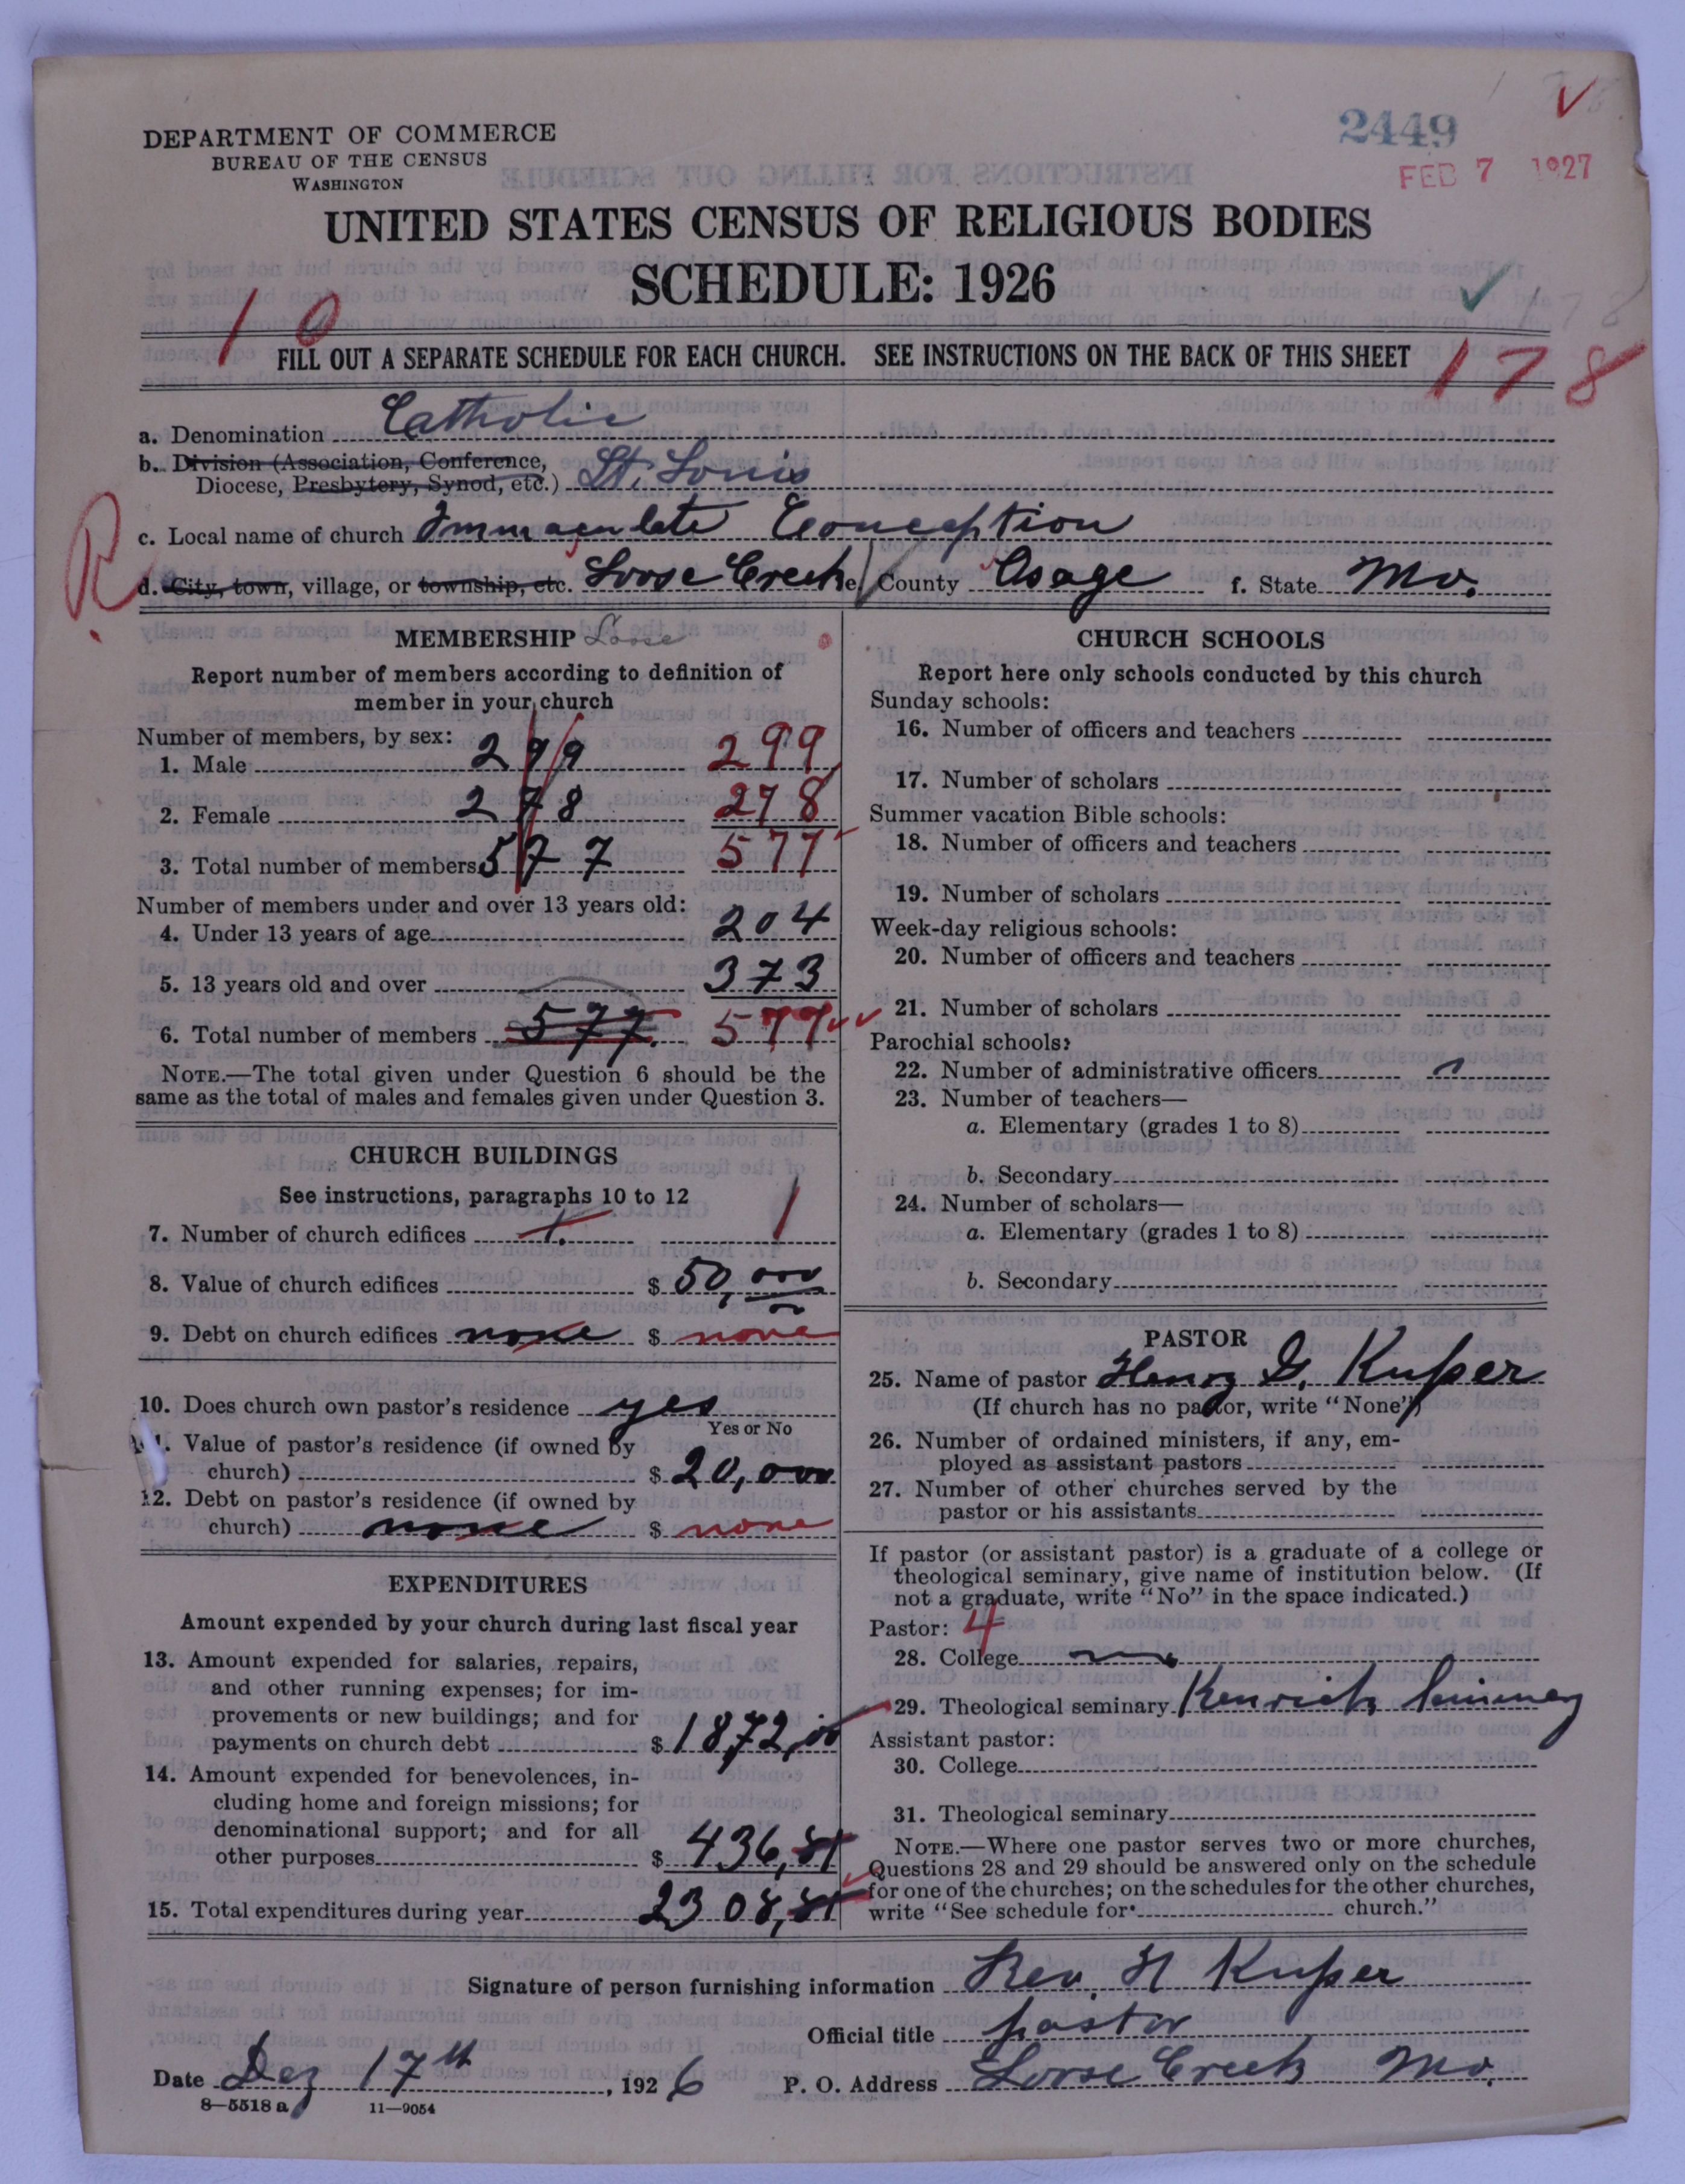 2449
FEB 7 1927
DEPARTMENT OF COMMERCE
BUREAU OF THE CENSUS
WASHINGTON
UNITED STATES CENSUS OF RELIGIOUS BODIES
SCHEDULE: 1926
10
178
FILL OUT A SEPARATE SCHEDULE FOR EACH CHURCH. SEE INSTRUCTIONS ON THE BACK OF THIS SHEET
178
a. Denomination Catholic
b. Division (Association, Conference,
Diocese, Presbytery, Synod, etc.) St. Louis
c. Local name of church Immaculate Conception
R
d. City, town, village, or township, etc. Loose Creek e. County Osage f. State Mo.
MEMBERSHIP Loose
Report number of members according to definition of
member in your church
Number of members, by sex:
1. Male 299 299
2. Female 278 278
3. Total number of members 577 577
Number of members under and over 13 years old:
4. Under 13 years of age 204
5. 13 years old and over 373
6. Total number of members 577. 577
NOTE.—The total given under Question 6 should be the
same as the total of males and females given under Question 3.
CHURCH BUILDINGS
See instructions, paragraphs 10 to 12
7. Number of church edifices 1. 1
8. Value of church edifices $ 50,000
9. Debt on church edifices none $ none
10. Does church own pastor's residence yes
Yes or No
11. Value of pastor's residence (if owned by
church) $ 20,000
12. Debt on pastor's residence (if owned by
church) none $ none
EXPENDITURES
Amount expended by your church during last fiscal year
13. Amount expended for salaries, repairs,
and other running expenses; for im-
provements or new buildings; and for
payments on church debt $ 1872,00
14. Amount expended for benevolences, in-
cluding home and foreign missions; for
denominational support; and for all
other purposes $ 436,81
15. Total expenditures during year 2308,81
CHURCH SCHOOLS
Report here only schools conducted by this church
Sunday schools:
16. Number of officers and teachers
17. Number of scholars
Summer vacation Bible schools:
18. Number of officers and teachers
19. Number of scholars
Week-day religious schools:
20. Number of officers and teachers
21. Number of scholars
Parochial schools:
22. Number of administrative officers
23. Number of teachers—
a. Elementary (grades 1 to 8)
b. Secondary
24. Number of scholars—
a. Elementary (grades 1 to 8)
b. Secondary
PASTOR
25. Name of pastor Henry G. Kuper
(If church has no pastor, write "None")
26. Number of ordained ministers, if any, em-
ployed as assistant pastors
27. Number of other churches served by the
pastor or his assistants
If pastor (or assistant pastor) is a graduate of a college or
theological seminary, give name of institution below. (If
not a graduate, write "No" in the space indicated.)
Pastor: 4
28. College
29. Theological seminary Kenrick Seminary
Assistant pastor:
30. College
31. Theological seminary
NOTE.—Where one pastor serves two or more churches,
Questions 28 and 29 should be answered only on the schedule
for one of the churches; on the schedules for the other churches,
write "See schedule for church."
Signature of person furnishing information Rev. H Kuper
Official title pastor
Date Dez 17th, 1926 P. O. Address Loose Creek Mo.
8—5518 a 11—9054